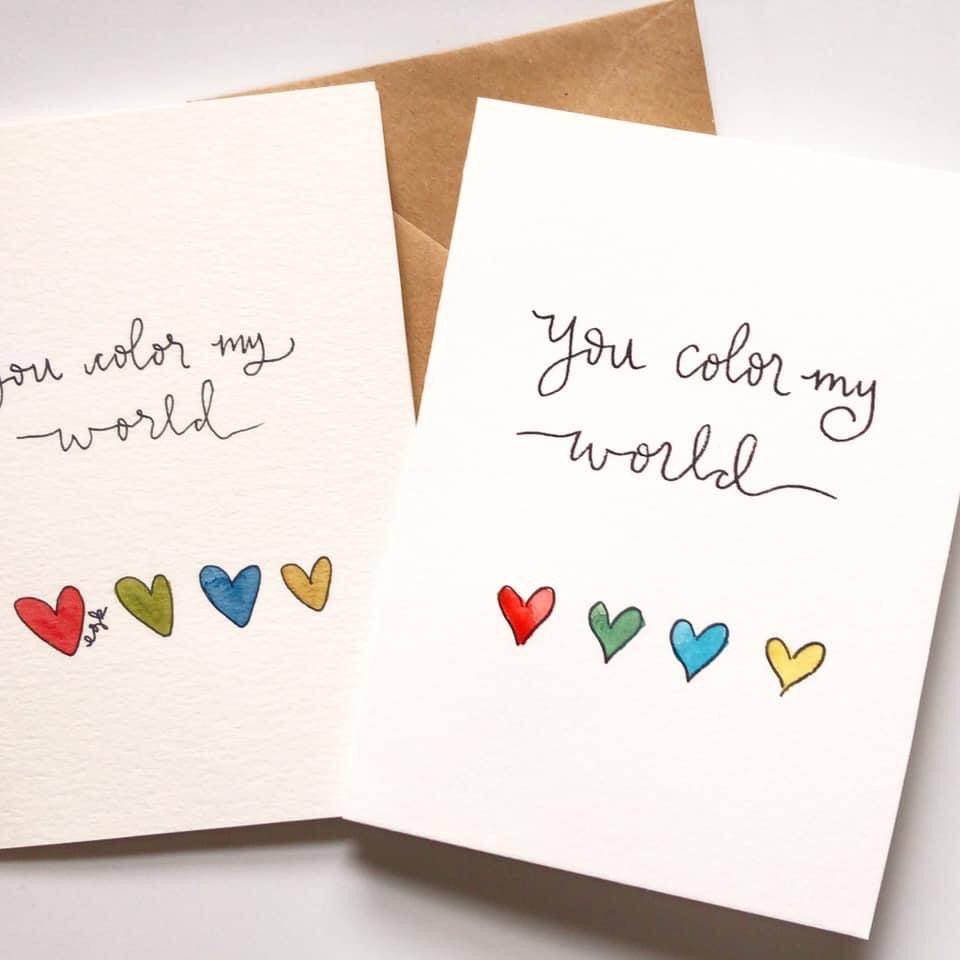 you color my
world
egk
you color my
world